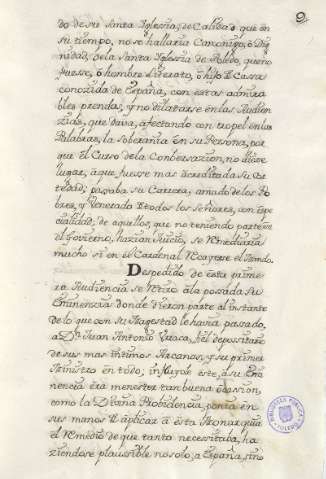 9
do de su Santa Iglesia, y de Calidad que en
su tiempo, no se hallaria Canonigo, ò Dig
nidad, de la Santa Iglesia de Toledo, que no
fuesse, ò hombre Literato, ò hijo de Cassa
conozida de España, con estas admira
bles prendas, y no dilatarse en las Audien
zias, que dava, afectando con tropel en las
Palabras, la Soberania en su Persona, por
que el Curso de la Conbersazion, no diesse
lugar, a que fuesse mas acreditada su
pasava su Carrera, amado de los Po
bres, y Venerado de todos los Señores, con espe
cialidad, de aquellos, que no teniendo parte en
el Govierno, hazian Juicio, se
mucho si en el Cardenal recayese el Mando.
Despedido de esta prime
ra Audiencia se retiro à la posada Su
Eminencia donde dieron parte al instante
de lo que con Su Magestad le havia passado,
a Dn. Juan Antonio fiel depositario
de sus mas intimos Arcanos, y su primer
Ministro en todo, influyole este, a Su Emi
nencia era menester tan buena ocassion,
como la Divina Probidencia, ponia en
sus manos de aplicar à esta Monarquia
el remedio de que tanto necessitava, ha
ziendose plausible no solo, a España, sino
BIBLIOTECA PUBLICA
TOLEDO